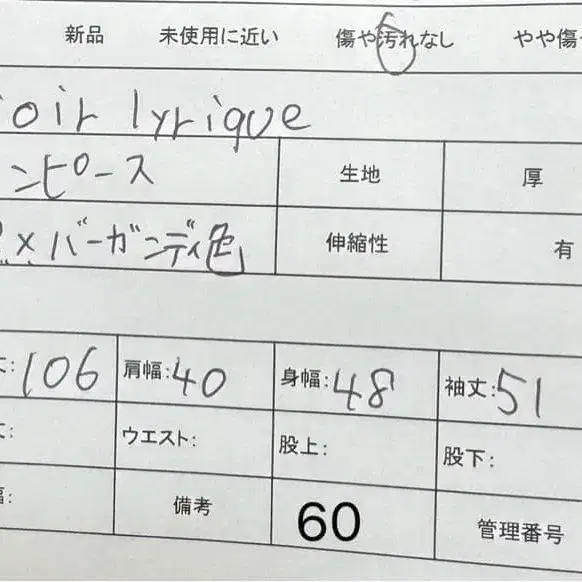 新品 未使用に近い 傷や汚れなし やや傷
oir lyrique
ンピース 生地 厚
×バーガンディ色 伸縮性 有
丈:106 肩幅:40 身幅:48 袖丈:51
丈: ウエスト: 股上: 股下:
幅: 備考 60 管理番号